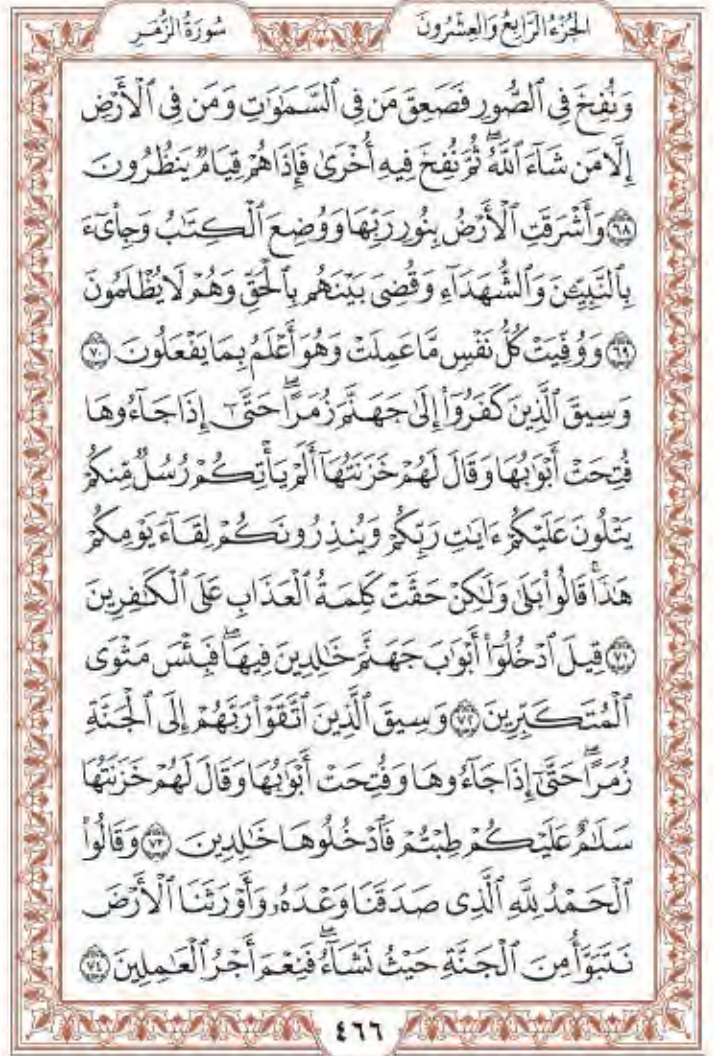 الجُزْءُ الرَّابِعُ وَالعِشْرُونَ
سُورَةُ الزُّمَر
وَنُفِخَ فِي ٱلصُّورِ فَصَعِقَ مَن فِي ٱلسَّمَٰوَٰتِ وَمَن فِي ٱلْأَرْضِ
إِلَّا مَن شَآءَ ٱللَّهُۖ ثُمَّ نُفِخَ فِيهِ أُخْرَىٰ فَإِذَا هُمْ قِيَامٌ يَنظُرُونَ
۝٦٨ وَأَشْرَقَتِ ٱلْأَرْضُ بِنُورِ رَبِّهَا وَوُضِعَ ٱلْكِتَٰبُ وَجِا۟يٓءَ
بِٱلنَّبِيِّـۧنَ وَٱلشُّهَدَآءِ وَقُضِيَ بَيْنَهُم بِٱلْحَقِّ وَهُمْ لَا يُظْلَمُونَ
۝٦٩ وَوُفِّيَتْ كُلُّ نَفْسٍ مَّا عَمِلَتْ وَهُوَ أَعْلَمُ بِمَا يَفْعَلُونَ ۝٧٠
وَسِيقَ ٱلَّذِينَ كَفَرُوٓا۟ إِلَىٰ جَهَنَّمَ زُمَرًاۖ حَتَّىٰٓ إِذَا جَآءُوهَا
فُتِحَتْ أَبْوَٰبُهَا وَقَالَ لَهُمْ خَزَنَتُهَآ أَلَمْ يَأْتِكُمْ رُسُلٌ مِّنكُمْ
يَتْلُونَ عَلَيْكُمْ ءَايَٰتِ رَبِّكُمْ وَيُنذِرُونَكُمْ لِقَآءَ يَوْمِكُمْ
هَٰذَاۚ قَالُوا۟ بَلَىٰ وَلَٰكِنْ حَقَّتْ كَلِمَةُ ٱلْعَذَابِ عَلَى ٱلْكَٰفِرِينَ
۝٧١ قِيلَ ٱدْخُلُوٓا۟ أَبْوَٰبَ جَهَنَّمَ خَٰلِدِينَ فِيهَاۖ فَبِئْسَ مَثْوَى
ٱلْمُتَكَبِّرِينَ ۝٧٢ وَسِيقَ ٱلَّذِينَ ٱتَّقَوْا۟ رَبَّهُمْ إِلَى ٱلْجَنَّةِ
زُمَرًاۖ حَتَّىٰٓ إِذَا جَآءُوهَا وَفُتِحَتْ أَبْوَٰبُهَا وَقَالَ لَهُمْ خَزَنَتُهَا
سَلَٰمٌ عَلَيْكُمْ طِبْتُمْ فَٱدْخُلُوهَا خَٰلِدِينَ ۝٧٣ وَقَالُوا۟
ٱلْحَمْدُ لِلَّهِ ٱلَّذِي صَدَقَنَا وَعْدَهُۥ وَأَوْرَثَنَا ٱلْأَرْضَ
نَتَبَوَّأُ مِنَ ٱلْجَنَّةِ حَيْثُ نَشَآءُۖ فَنِعْمَ أَجْرُ ٱلْعَٰمِلِينَ ۝٧٤
٤٦٦